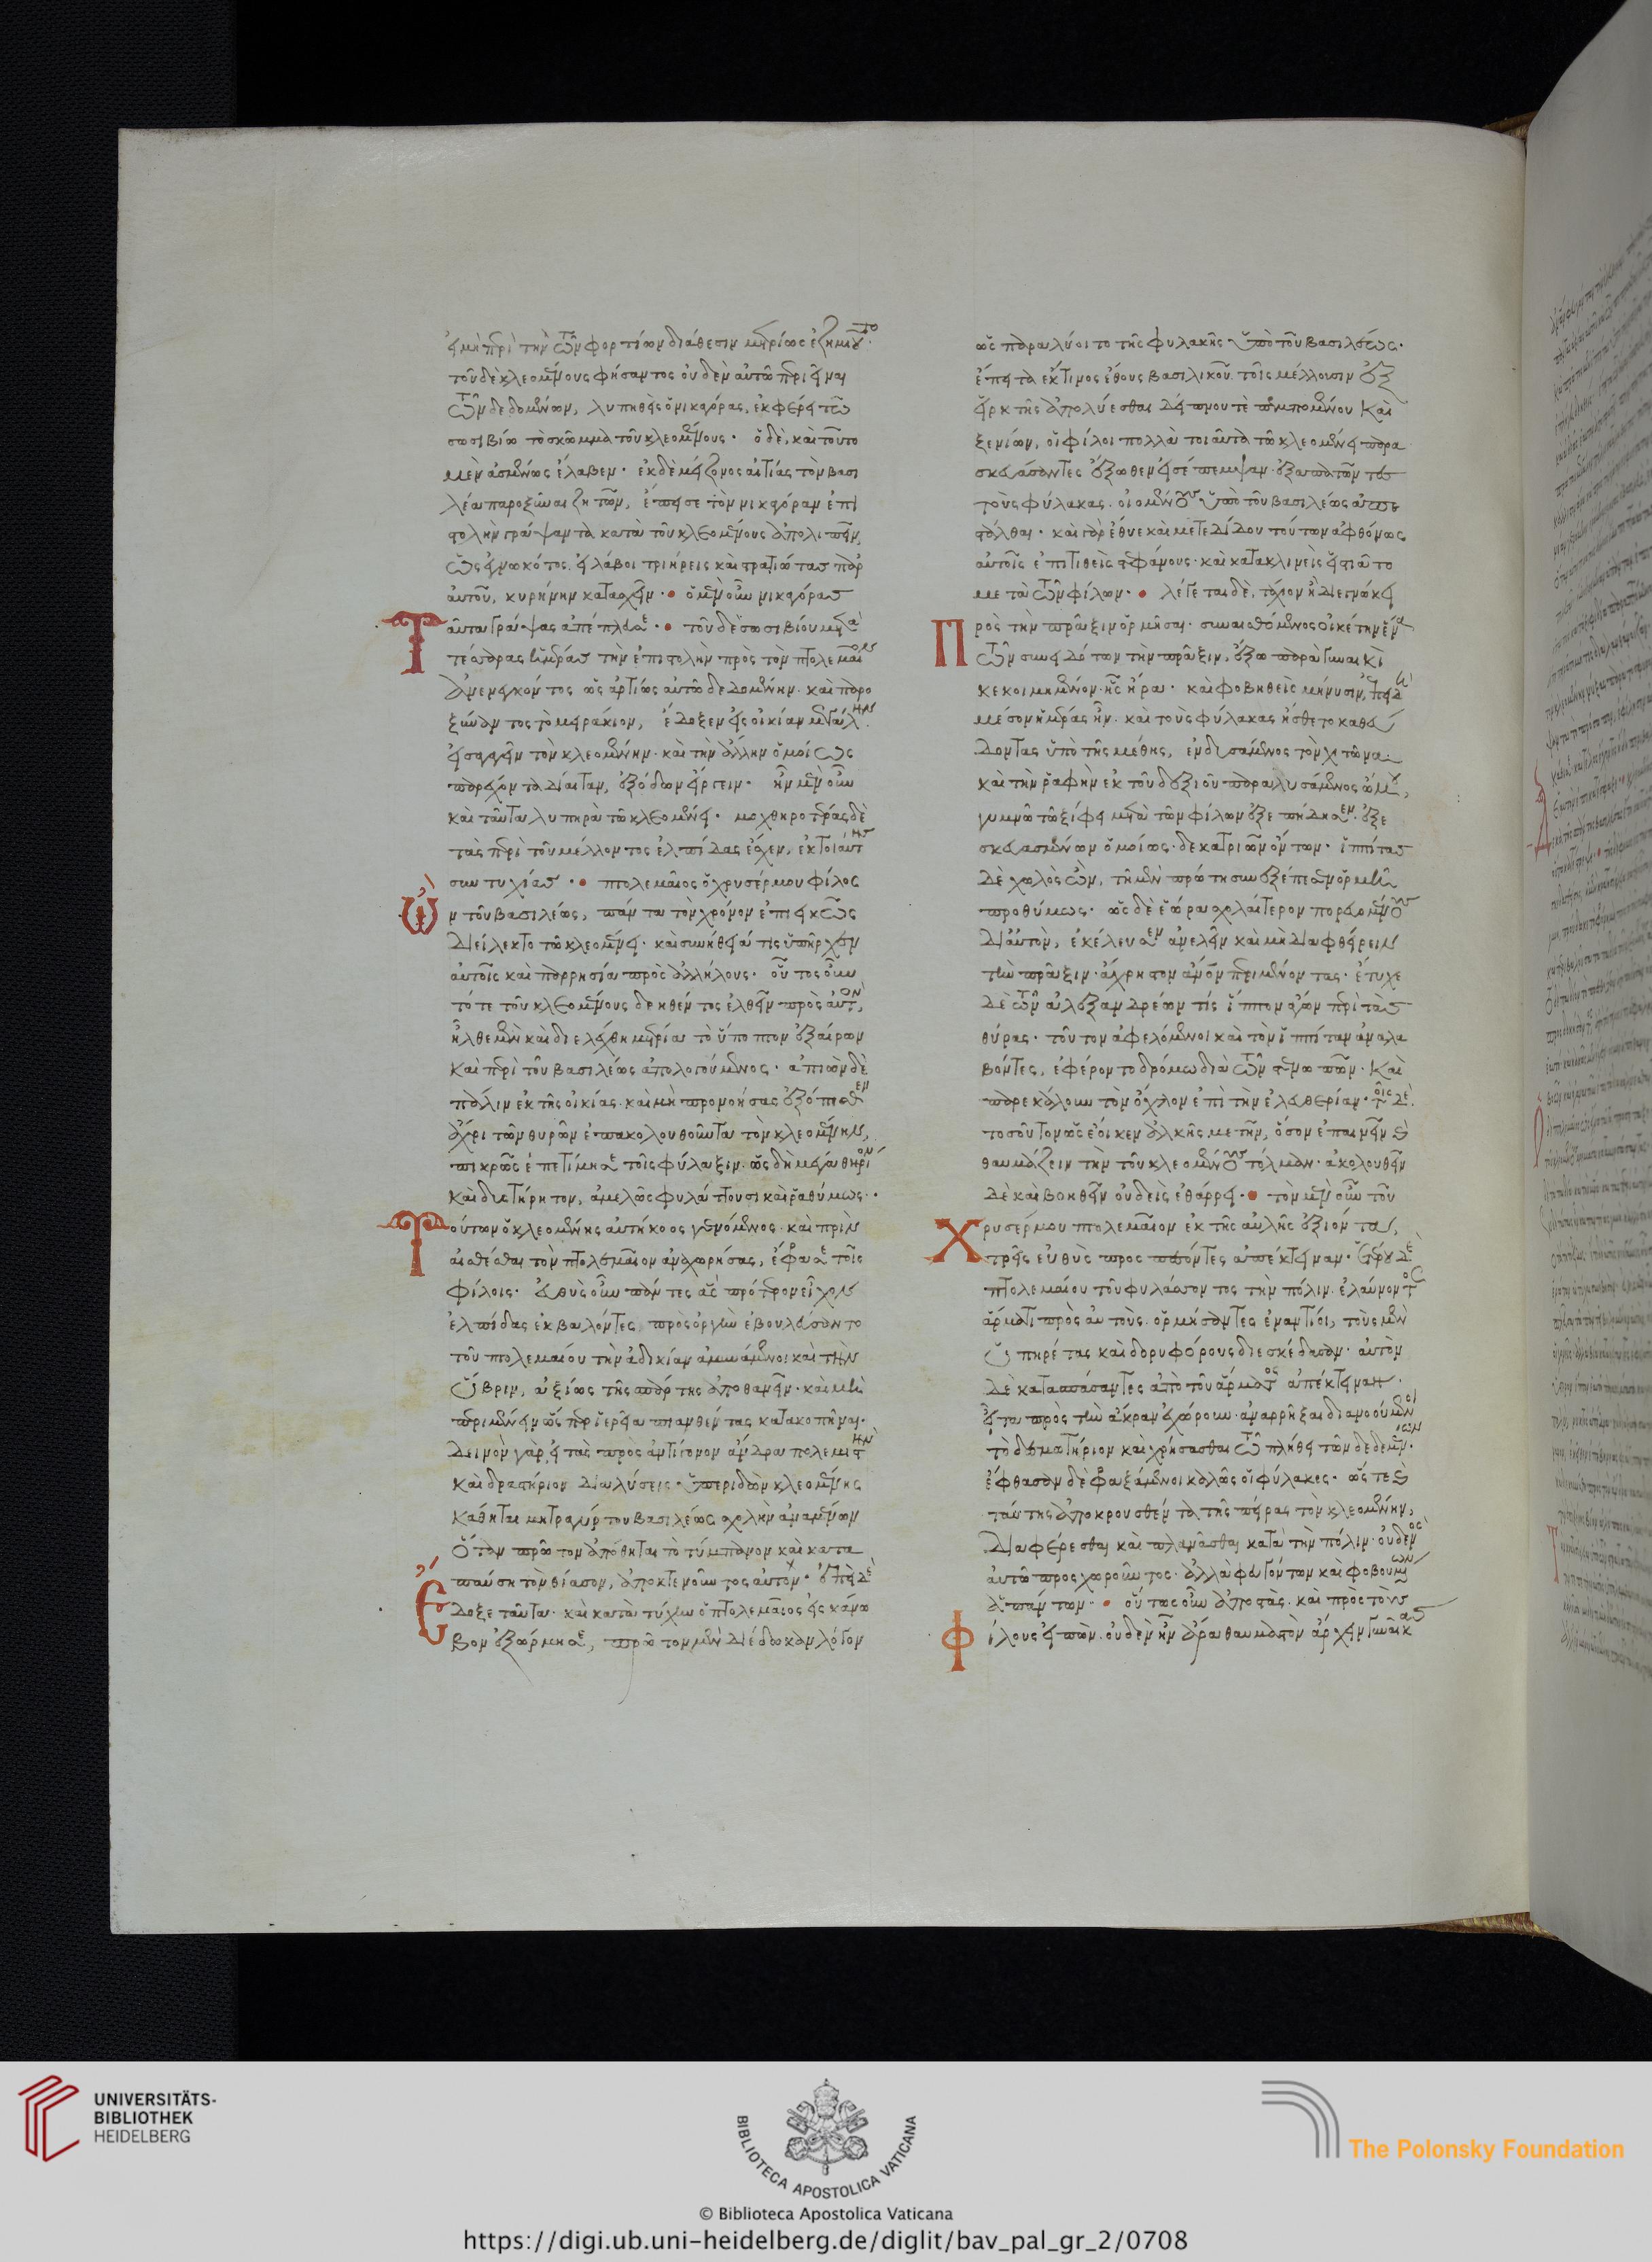 εἰ μὴ περὶ τὴν τῶν φορτίων διάθεσιν μετρίως ἐζημιοῦτο.
τοῦ δὲ κλεομένους φήσαντος οὐδὲν αὐτῶ περιεῖναι
τῶν δεδομένων, λυπηθεὶς ὁ νικαγόρας, ἐκφέρει τῶ
σωσιβίω τὸ σκῶμμα τοῦ κλεομένους· ὁ δὲ, καὶ τοῦτο
μὲν ἀσμένως ἔλαβεν· ἐκ δὲ μείζονος αἰτίας τὸν βασι
λέα παροξῦναι ζητῶν, ἔπεισε τὸν νικαγόραν ἐπι
στολὴν γράψαντα κατὰ τοῦ κλεομένους ἀπολιπεῖν,
ὡς ἐγνωκότος, εἰ λάβοι τριήρεις καὶ στρατιώτας παρ
αὐτοῦ, κυρήνην κατασχεῖν· ὁ μὲν οὖν νικαγόρας
Ταῦτα γράψας ἀπέπλευσε· τοῦ δὲ σωσιβίου μετὰ
τέσσαρας ἡμέρας τὴν ἐπιστολὴν πρὸς τὸν πτολεμαῖον
ἀνενεγκόντος ὡς ἀρτίως αὐτῶ δεδομένην· καὶ παρο
ξύναντος τὸ μειράκιον, ἔδοξεν εἰς οἰκίαν μεγάλην
εἰσαγαγεῖν τὸν κλεομένην· καὶ τὴν ἄλλην ὁμοίως
παρέχοντα δίαιταν, ἐξόδων εἴργειν· ἦν μὲν οὖν
καὶ ταῦτα λυπηρὰ τῶ κλεομένει· μοχθηροτέρας δὲ
τὰς περὶ τοῦ μέλλοντος ἐλπίδας ἔσχεν, ἐκ τοιαύτης
συντυχίας· πτολεμαῖος ὁ χρυσέρμου φίλος
Ὢν τοῦ βασιλέως, πάντα τὸν χρόνον ἐπιεικῶς
διείλεκτο τῶ κλεομένει· καὶ συνήθειά τις ὑπῆρχεν
αὐτοῖς καὶ παρρησία πρὸς ἀλλήλους· οὗτος οὖν
τότε τοῦ κλεομένους δεηθέντος ἐλθεῖν πρὸς αὐτὸν,
ἦλθε μὲν καὶ διελέχθη μέτρια τὸ ὕποπτον ἐξαίρων
καὶ περὶ τοῦ βασιλέως ἀπολογούμενος· ἀπιὼν δὲ
πάλιν ἐκ τῆς οἰκίας καὶ μὴ προνοήσας ἐξόπισθεν
ἄχρι τῶν θυρῶν ἐπακολουθοῦντα τὸν κλεομένην,
πικρῶς ἐπετίμησε τοῖς φύλαξιν· ὡς δὴ μέγα θηρίον
καὶ δυστήρητον, ἀμελῶς φυλάττουσι καὶ ῥαθύμως·
Τούτων ὁ κλεομένης αὐτήκοος γενόμενος· καὶ πρὶν
αἰσθέσθαι τὸν πτολεμαῖον ἀναχωρήσας, ἔφρασε τοῖς
φίλοις· εὐθὺς οὖν πάντες ἃς πρότερον εἶχον
ἐλπίδας ἐκβαλόντες, πρὸς ὀργὴν ἐβουλεύσαντο
τοῦ πτολεμαίου τὴν ἀδικίαν ἀμυνάμενοι καὶ τὴν
ὕβριν, ἀξίως τῆς σπάρτης ἀποθανεῖν· καὶ μὴ
περιμένειν ὥσπερ ἱερεῖα πιανθέντας κατακοπῆναι·
δεινὸν γὰρ, εἰ τὰς πρὸς ἀντίγονον ἄνδρα πολεμιστὴν
καὶ δραστήριον διαλύσεις ὑπεριδὼν κλεομένης
κάθηται μητραγύρτου βασιλέως σχολὴν ἀναμένων
ὅταν πρῶτον ἀπόθηται τὸ τύμπανον καὶ κατα
παύση τὸν θίασον, ἀποκτενοῦντος αὐτόν· ἐπεὶ δὲ
Ἔδοξε ταῦτα· καὶ κατὰ τύχην ὁ πτολεμαῖος εἰς κάνω
βον ἐξώρμησε, πρῶτον μὲν διέδωκαν λόγον
ὡς παραλύοιτο τῆς φυλακῆς ὑπὸ τοῦ βασιλέως·
ἔπειτα ἔκ τινος ἔθους βασιλικοῦ τοῖς μέλλουσιν ἐξ
εἱρκτῆς ἀπολύεσθαι δείπνου τὲ πεμπομένου καὶ
ξενίων, οἱ φίλοι πολλὰ τοιαῦτα τῶ κλεομένει παρα
σκευάσαντες ἔξωθεν εἰσέπεμψαν· ἐξαπατῶντες
τοὺς φύλακας· οἰομένους ὑπὸ τοῦ βασιλέως ἀπε
στάλθαι· καὶ γὰρ ἔθυε καὶ μετεδίδου τούτων ἀφθόνως
αὐτοῖς ἐπιτιθεὶς στεφάνους· καὶ κατακλιθεὶς εἱστιᾶτο
μετὰ τῶν φίλων· λέγεται δὲ, τάχιον ἢ διεγνώκει
Πρὸς τὴν πρᾶξιν ὁρμῆσαι· συναισθόμενος οἰκέτην ἕνα
τῶν συνειδότων τὴν πρᾶξιν, ἔξω παρὰ γυναικὶ
κεκοιμημένον ἧς ἤρα· καὶ φοβηθεὶς μήνυσιν, ἐπειδὴ
μέσον ἡμέρας ἦν· καὶ τοὺς φύλακας ἤσθετο καθεύ
δοντας ὑπὸ τῆς μέθης, ἐνδυσάμενος τὸν χιτῶνα
καὶ τὴν ῥαφὴν ἐκ τοῦ δεξιοῦ παραλυσάμενος ὤμου,
γυμνῶ τῶ ξίφει μετὰ τῶν φίλων ἐξεπήδησεν· ἐξε
σκευασμένων ὁμοίως· δεκατριῶν ὄντων· ἱππίτας
δὲ χωλὸς ὢν, τῆ μὲν πρώτη συνεξέπεσεν ὁρμῆ
προθύμως· ὡς δὲ ἑώρα σχολαίτερον πορευομένους
δι' αὐτὸν, ἐκέλευσεν ἀνελεῖν καὶ μὴ διαφθείρειν
τὴν πρᾶξιν· ἄχρηστον ἄνθρωπον περιμένοντας· ἔτυχε
δὲ τῶν ἀλεξανδρέων τίς ἵππον ἄγων περὶ τὰς
θύρας· τοῦτον ἀφελόμενοι καὶ τὸν ἱππίταν ἀναλα
βόντες, ἐφέροντο δρόμω διὰ τῶν στενωπῶν· καὶ
παρεκάλουν τὸν ὄχλον ἐπὶ τὴν ἐλευθερίαν· τοῖς δὲ
τοσοῦτον ὡς ἔοικεν ἀλκῆς μετῆν, ὅσον ἐπαινεῖν καὶ
θαυμάζειν τὴν τοῦ κλεομένους τόλμαν· ἀκολουθεῖν
δὲ καὶ βοηθεῖν οὐδεὶς ἐθάρρει· τὸν μὲν οὖν τοῦ
Χρυσέρμου πτολεμαῖον ἐκ τῆς αὐλῆς ἐξιόντα,
τρεῖς εὐθὺς προσπεσόντες ἀπέκτειναν· ἑτέρου δὲ
πτολεμαίου τοῦ φυλάσσοντος τὴν πόλιν ἐλαύνοντος
ἅρματι πρὸς αὐτοὺς· ὁρμήσαντες ἐναντίοι, τοὺς μὲν
ὑπηρέτας καὶ δορυφόρους διεσκέδασαν· αὐτὸν
δὲ κατασπάσαντες ἀπὸ τοῦ ἅρματος ἀπέκτειναν·
εἶτα πρὸς τὴν ἄκραν ἐχώρουν· ἀναρρῆξαι διανοούμενοι
τὸ δεσμωτήριον καὶ χρήσασθαι τῶ πλήθει τῶν δεδεμένων·
ἔφθασαν δὲ φραξάμενοι καλῶς οἱ φύλακες· ὥστε καὶ
ταύτης ἀποκρουσθέντα τῆς πείρας τὸν κλεομένην,
διαφέρεσθαι καὶ πλανᾶσθαι κατὰ τὴν πόλιν· οὐδενὸς
αὐτῶ προσχωροῦντος· ἀλλὰ φευγόντων καὶ φοβουμένων
ἁπάντων· οὕτως οὖν ἀποστὰς· καὶ πρὸς τοὺς
Φίλους εἰπὼν· οὐδὲν ἦν ἄρα θαυμαστὸν ἄρχειν γυναῖκας
UNIVERSITÄTS-
BIBLIOTHEK
HEIDELBERG
BIBLIOTECA APOSTOLICA VATICANA
The Polonsky Foundation
© Biblioteca Apostolica Vaticana
https://digi.ub.uni-heidelberg.de/diglit/bav_pal_gr_2/0708